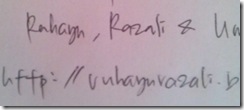 Rahayu, Razali &
http://ruhayurazali.b